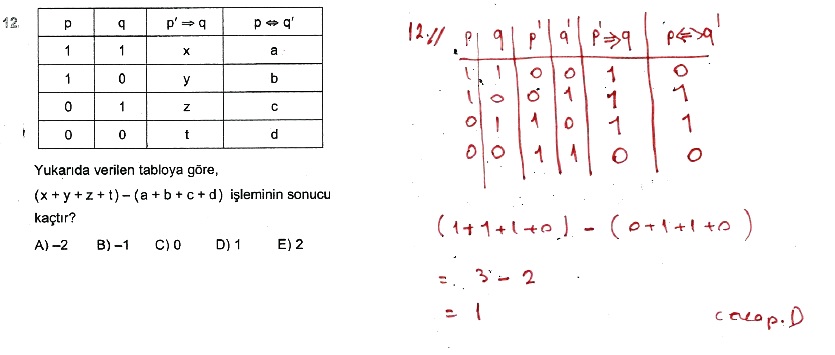 12.
p q p' ⇒ q p ⇔ q'
1 1 x a
1 0 y b
0 1 z c
0 0 t d
Yukarıda verilen tabloya göre,
(x + y + z + t) – (a + b + c + d) işleminin sonucu
kaçtır?
A) –2 B) –1 C) 0 D) 1 E) 2
12.//
p q p' q' p'⇒q p⇔q'
1 1 0 0 1 0
1 0 0 1 1 1
0 1 1 0 1 1
0 0 1 1 0 0
(1+1+1+0) - (0+1+1+0)
= 3 - 2
= 1
cevap. D